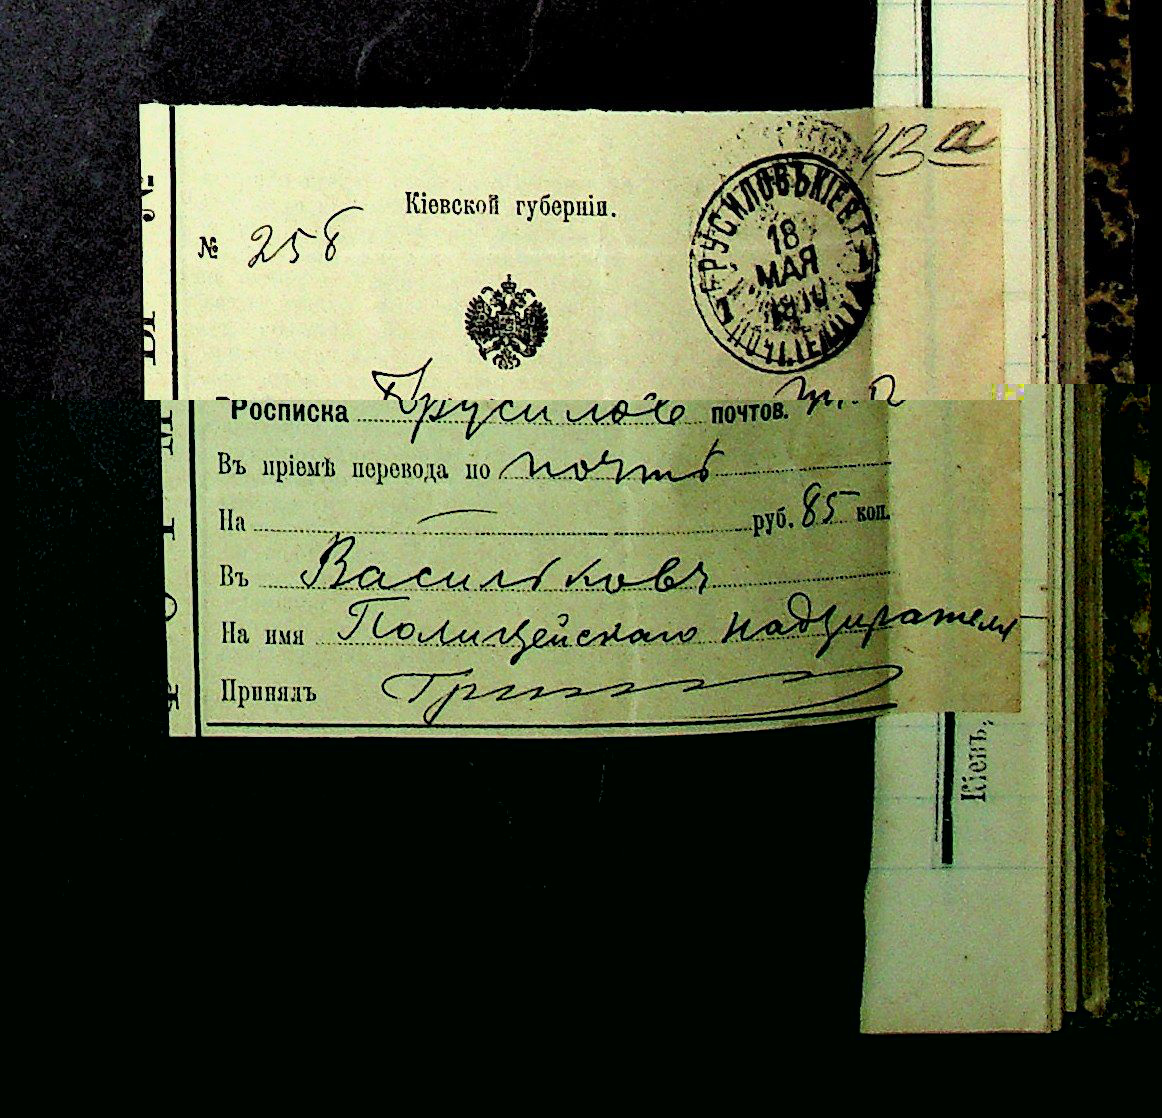 13 а
Кіевской губерніи.
№ 258
БРУСИЛОВЪ КІЕВ. Г.
18
МАЯ
ПОЧТ. ТЕЛ.
Росписка Брусилов почтов. т. о
Въ пріемѣ перевода по почтѣ
На — руб. 85 коп.
Въ Васильковъ
На имя Полицейскаго Надзирателя
Принялъ
Кіевъ,